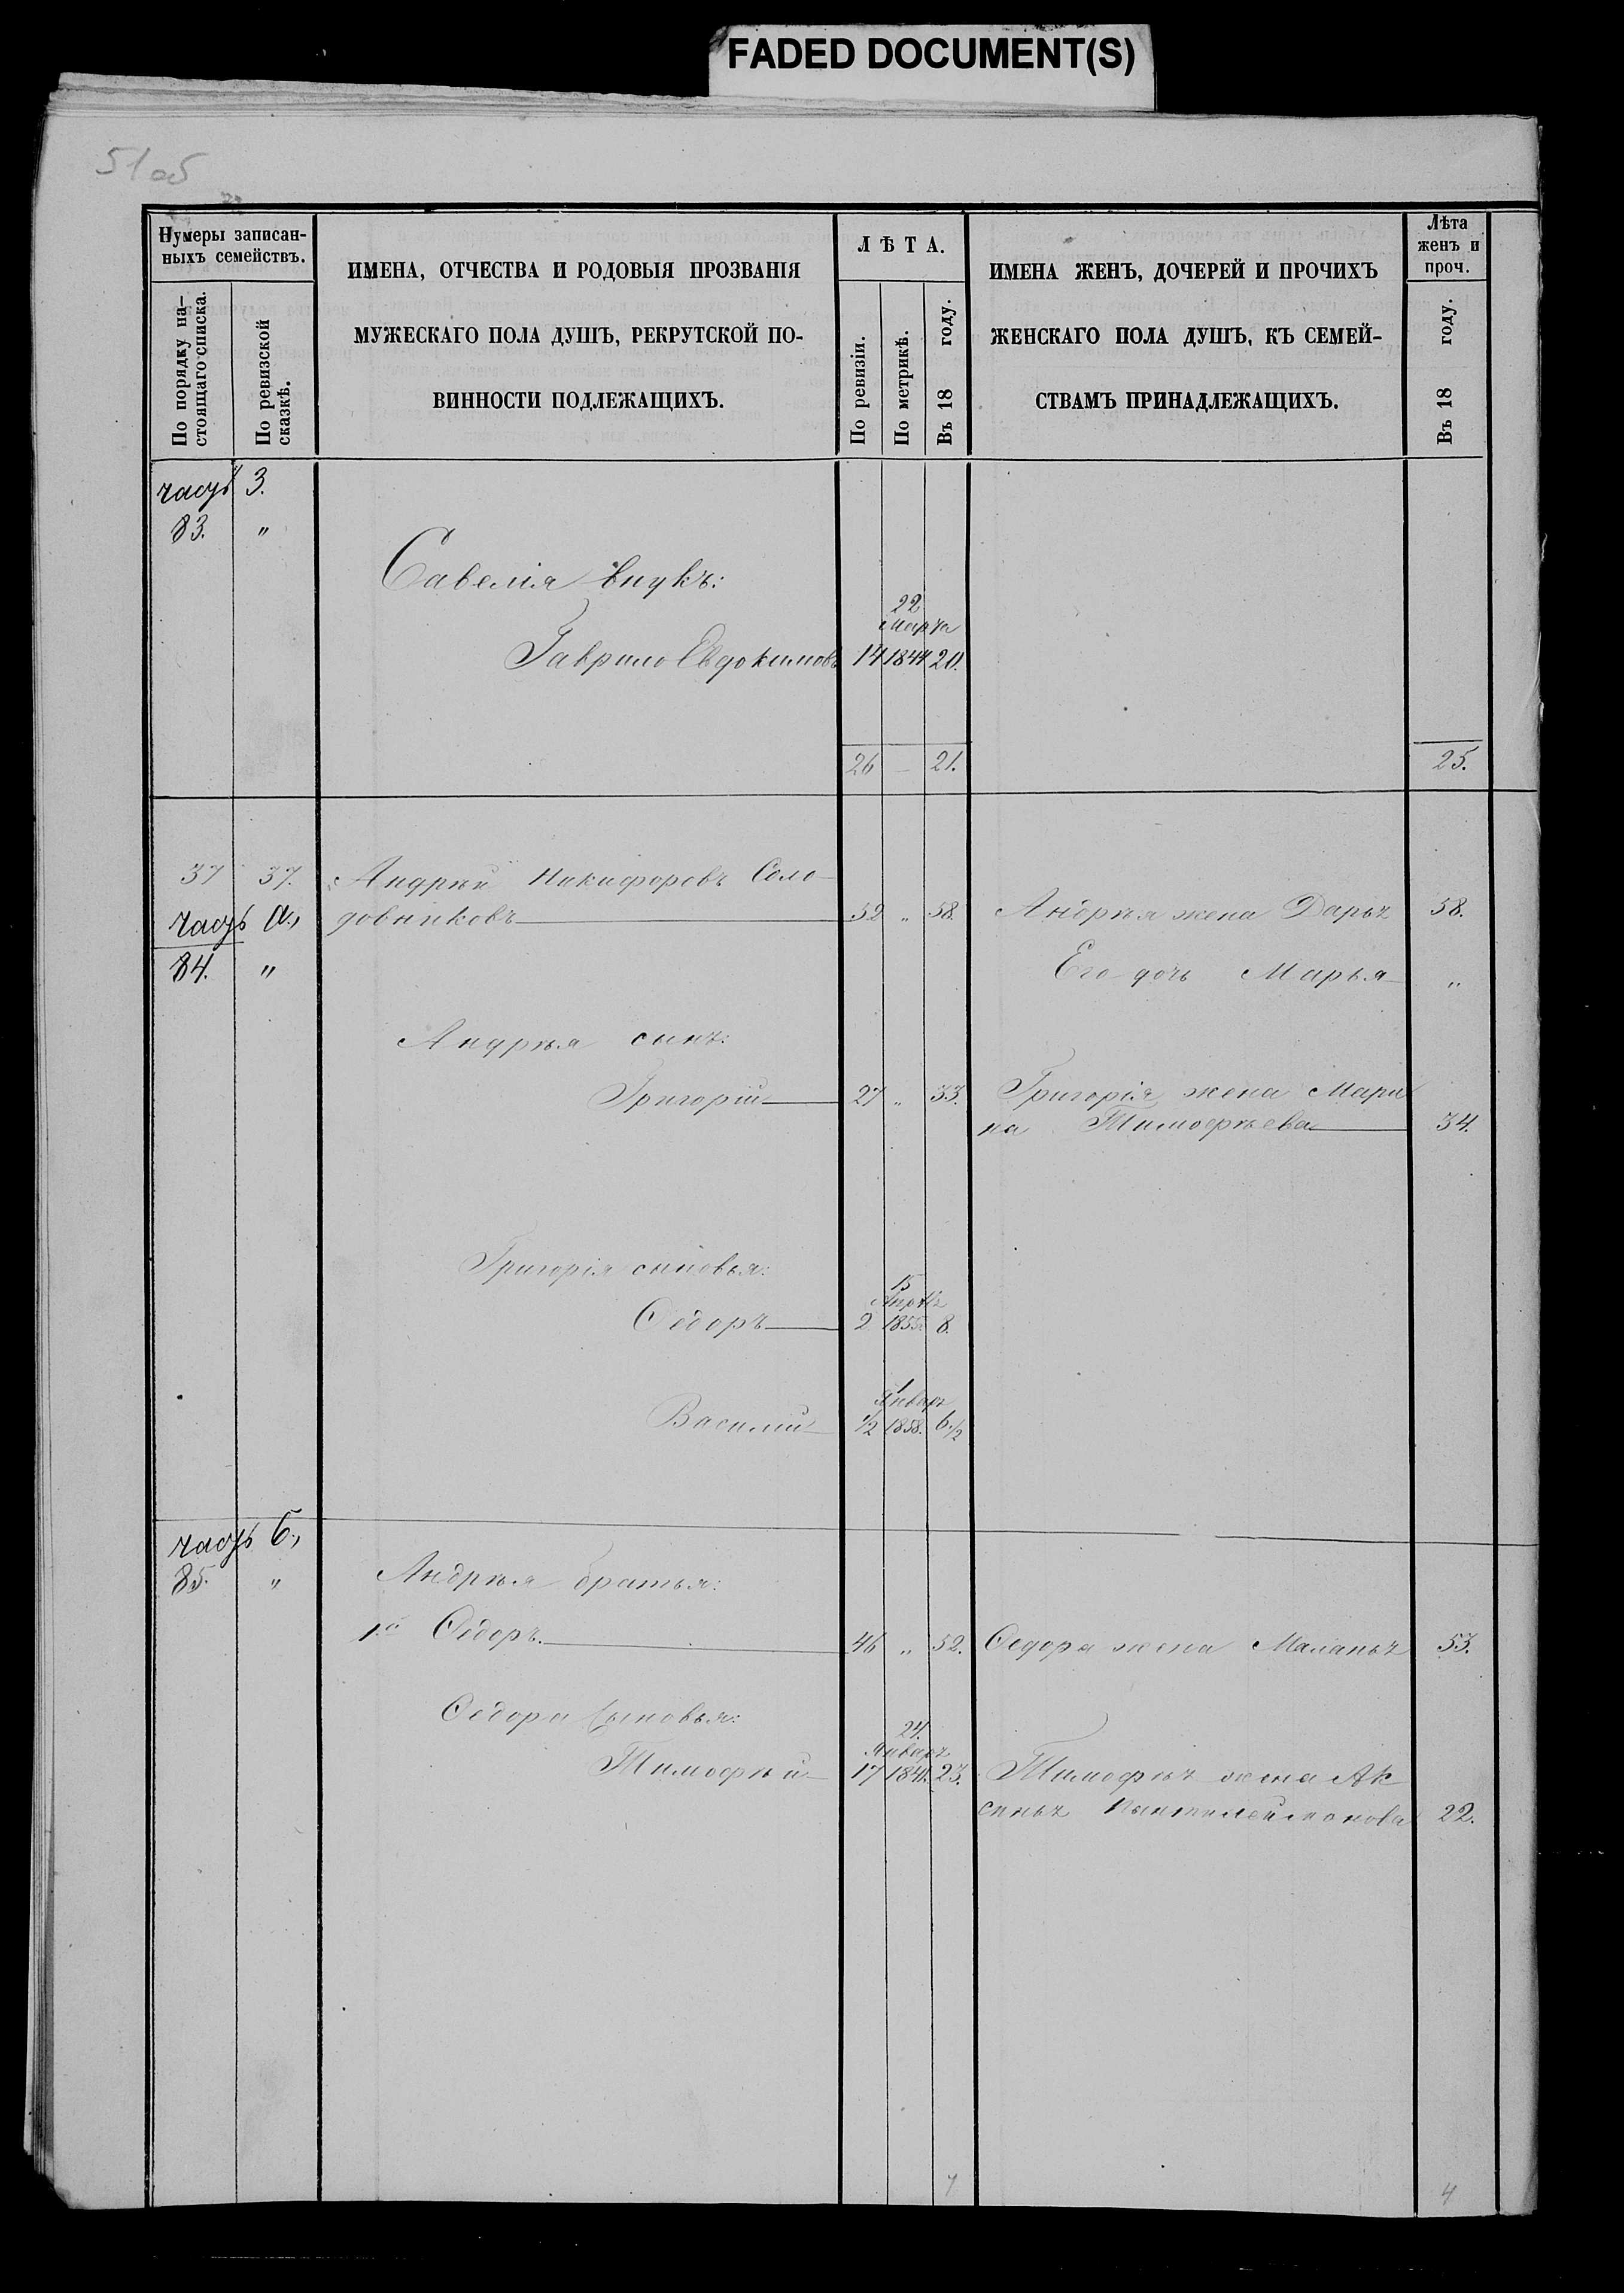 FADED DOCUMENT(S)
51об
Нумеры записан-
ныхъ семействъ.
По порядку на-
стоящаго списка.
По ревизской
сказкѣ.
ИМЕНА, ОТЧЕСТВА И РОДОВЫЯ ПРОЗВАНІЯ
МУЖЕСКАГО ПОЛА ДУШЪ, РЕКРУТСКОЙ ПО-
ВИННОСТИ ПОДЛЕЖАЩИХЪ.
ЛѢТА.
По ревизіи.
По метрикѣ.
Въ 18 году.
ИМЕНА ЖЕНЪ, ДОЧЕРЕЙ И ПРОЧИХЪ
ЖЕНСКАГО ПОЛА ДУШЪ, КЪ СЕМЕЙ-
СТВАМЪ ПРИНАДЛЕЖАЩИХЪ.
Лѣта
женъ и
проч.
Въ 18 году.
часть 3.
83. "
Савелія внукъ:
22
Марта
Гаврило Евдокимовъ 14 1844 20.
26 — 21. 25.
37 37. Андрѣй Никифоровъ Соло-
часть а., довниковъ 52 " 58. Андрѣя жена Дарья 58.
84. " Его дочь Марья "
Андрѣя сынъ:
Григорій 27 " 33. Григорія жена Мари
на Тимофѣева 34.
Григорія сыновья:
15
Апрѣл
Ѳедоръ 2 1855 8.
1
Январ
Василій ½ 1858. 6½
часть б.,
85. " Андрѣя братья:
1й Ѳедоръ. 46 " 52. Ѳедора жена Маланья 53.
Ѳедора сыновья:
24.
Январ
Тимофѣй 17 1841. 23. Тимофѣя жена Ак
синья Пантилеймонова 22.
7 4